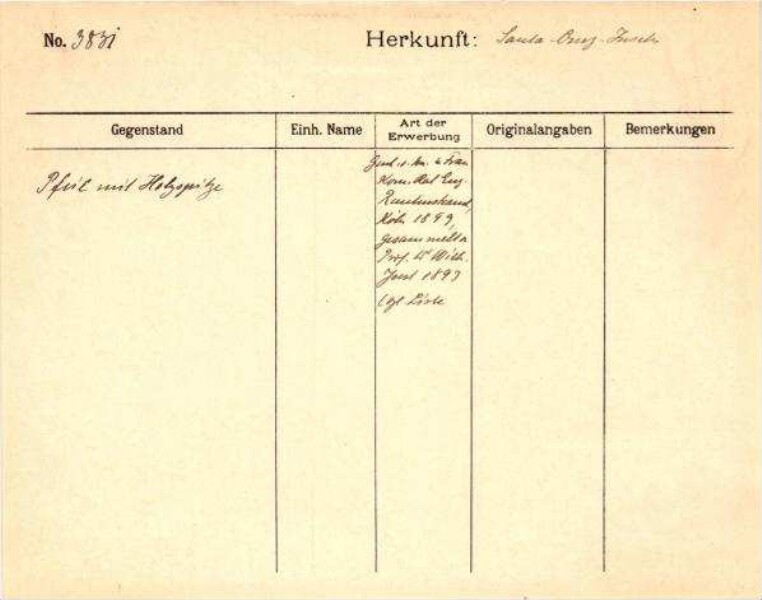 No. 3831 Herkunft: Santa-Cruz-Inseln
Gegenstand Einh. Name Art der Erwerbung Originalangaben Bemerkungen
Pfeil mit Holzspitze
Gesch. v. Hn. u Frau
Kom. Rat Eug.
Rautenstrauch,
Köln 1899,
gesammelt v
Prof. Dr Wilh.
Joest 1897
(vgl Liste